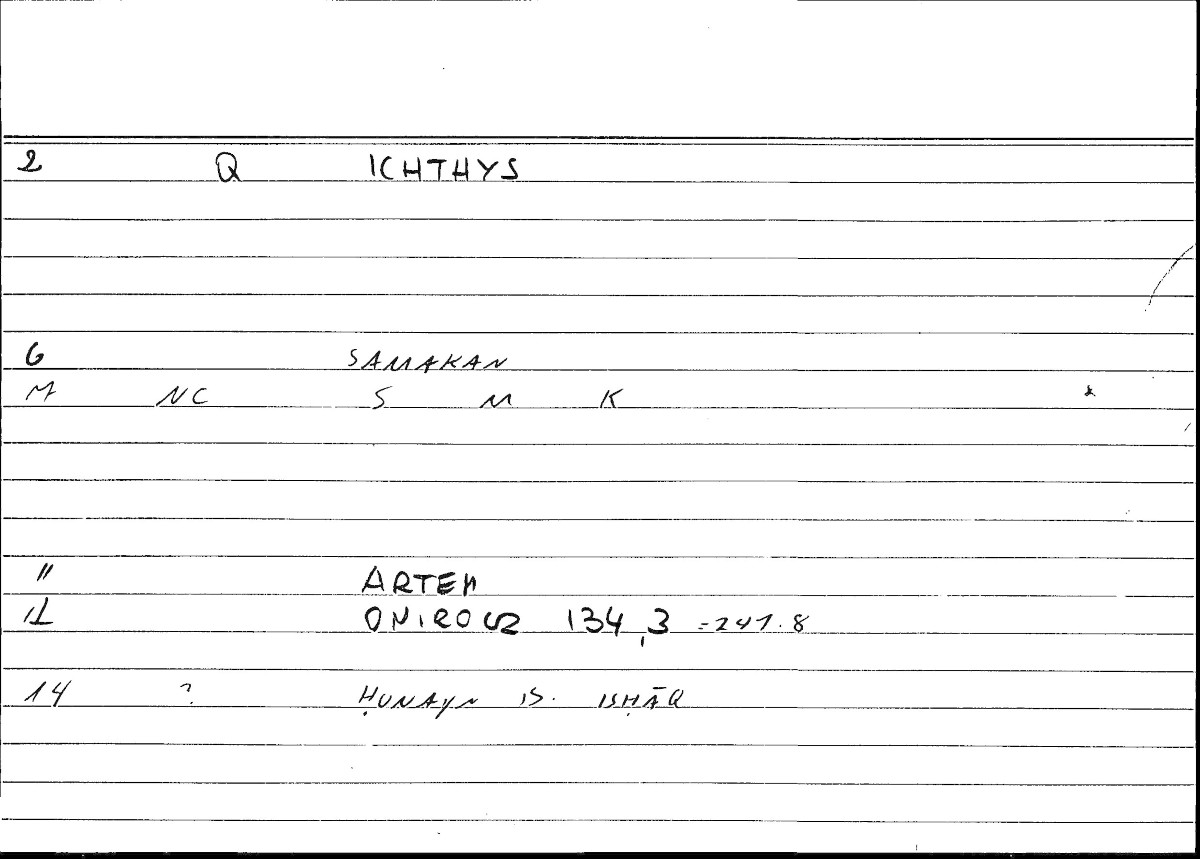 2 Q ICHTHYS
6 SAMAKAN
M NC S M K *
11 ARTEM
12 ONIROCR 134,3 =247.8
14 ? ḤUNAYN B. ISḤĀQ